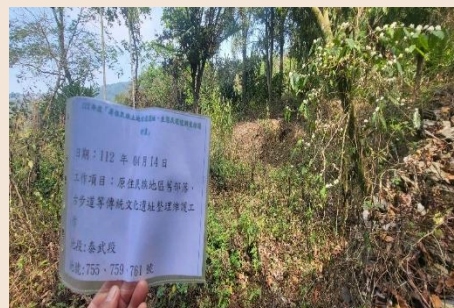 日期:112 年 04月14日
工作項目:原住民族地區舊部落、
古步道等傳統文化遺址整理維護工
地段:泰武段
地號:755、759、761 號